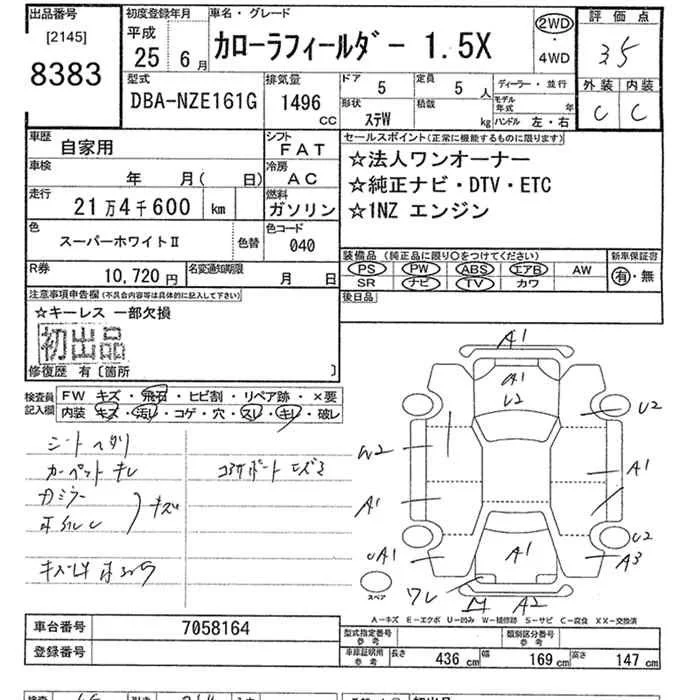 出品番号 初度登録年月 車名・グレード 評価点
[2145] 平成 2WD
8383 25年6月 カローラフィールダー 1.5X ・ 4WD 35
外装 内装
C C
型式 排気量 ドア 5 定員 5人 ディーラー・並行
DBA-NZE161G 1496cc 形状 ステW 積載 kg モデル年式 年 ハンドル 左・右
車歴 自家用 シフト FAT セールスポイント(正常に機能するものに限ります)
車検 年 月( 日) 冷房 AC ☆法人ワンオーナー
走行 21万4千600km 燃料 ガソリン ☆純正ナビ・DTV・ETC
☆1NZ エンジン
色 スーパーホワイトⅡ 色替 色コード 040
装備品(純正品に限り○をつけてください) 新車保証書
PS PW ABS エアB AW 有・無
SR ナビ TV カワ
R券 10,720円 名変通知期限 月 日
後日品
注意事項申告欄(不具合内容等は具体的に記入して下さい)
☆キーレス 一部欠損
初出品
修復歴 有〔箇所 〕
検査員記入欄 FW キズ・飛石・ヒビ割・リペア跡・×要
内装 キズ・汚レ・コゲ・穴・スレ・キレ・破レ
シートヘタリ
カーペットキレ
キズ
A1
A1
U2
U2
A1
A1
U2
UA1
A3
A1
ワレ
A2
スペア
A-キズ E-エクボ U-凹み W-補修跡 S-サビ C-腐食 XX-交換済
車台番号 7058164
型式指定番号 参考 類別区分番号 参考
登録番号
車庫証明用 参考 長さ 436cm 幅 169cm 高さ 147cm